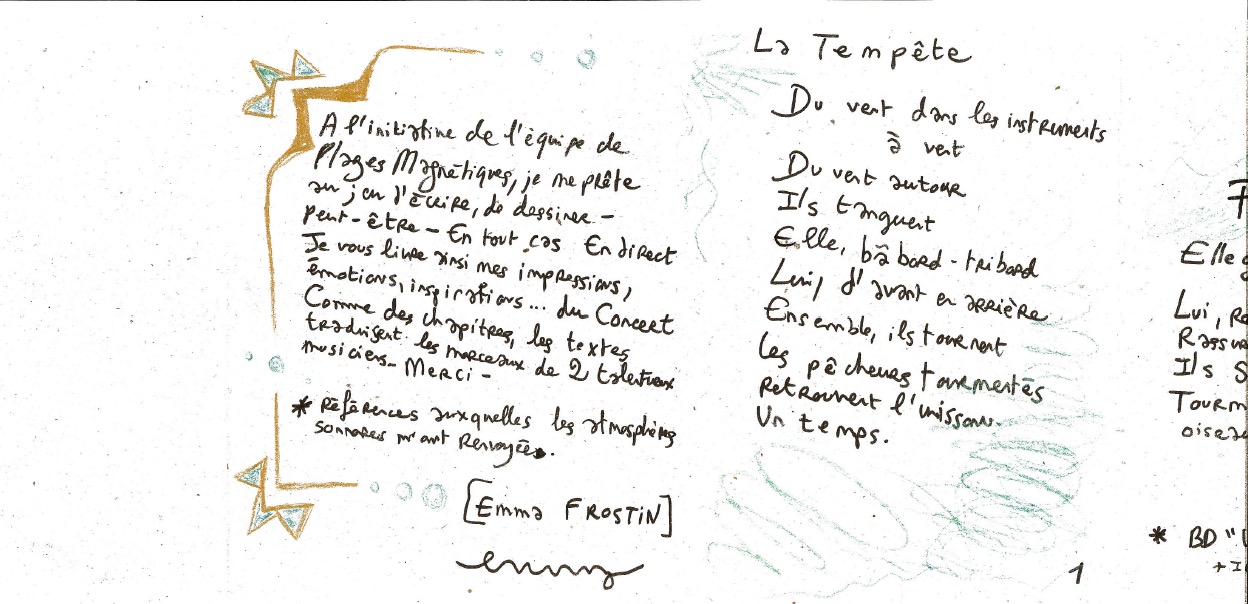 A l'initiative de l'équipe de
Plages Magnétiques, je me prête
au jeu d'écrire, de dessiner -
peut-être - En tout cas En direct
Je vous livre ainsi mes impressions,
émotions, inspirations... du Concert
Comme des chapitres, les textes
traduisent les morceaux de 2 talentueux
musiciens - Merci -
* Références auxquelles les atmosphères
sonores m'ont renvoyée.
[Emma FROSTIN]
La Tempête
Du vent dans les instruments
à vent
Du vent autour
Ils tanguent
Elle, bâbord-tribord
Lui, d'avant en arrière
Ensemble, ils tournent
Les pêcheurs tourmentés
Retrouvent l'unisson.
Un temps.
1
Elle
Lui,
Ils
* BD "